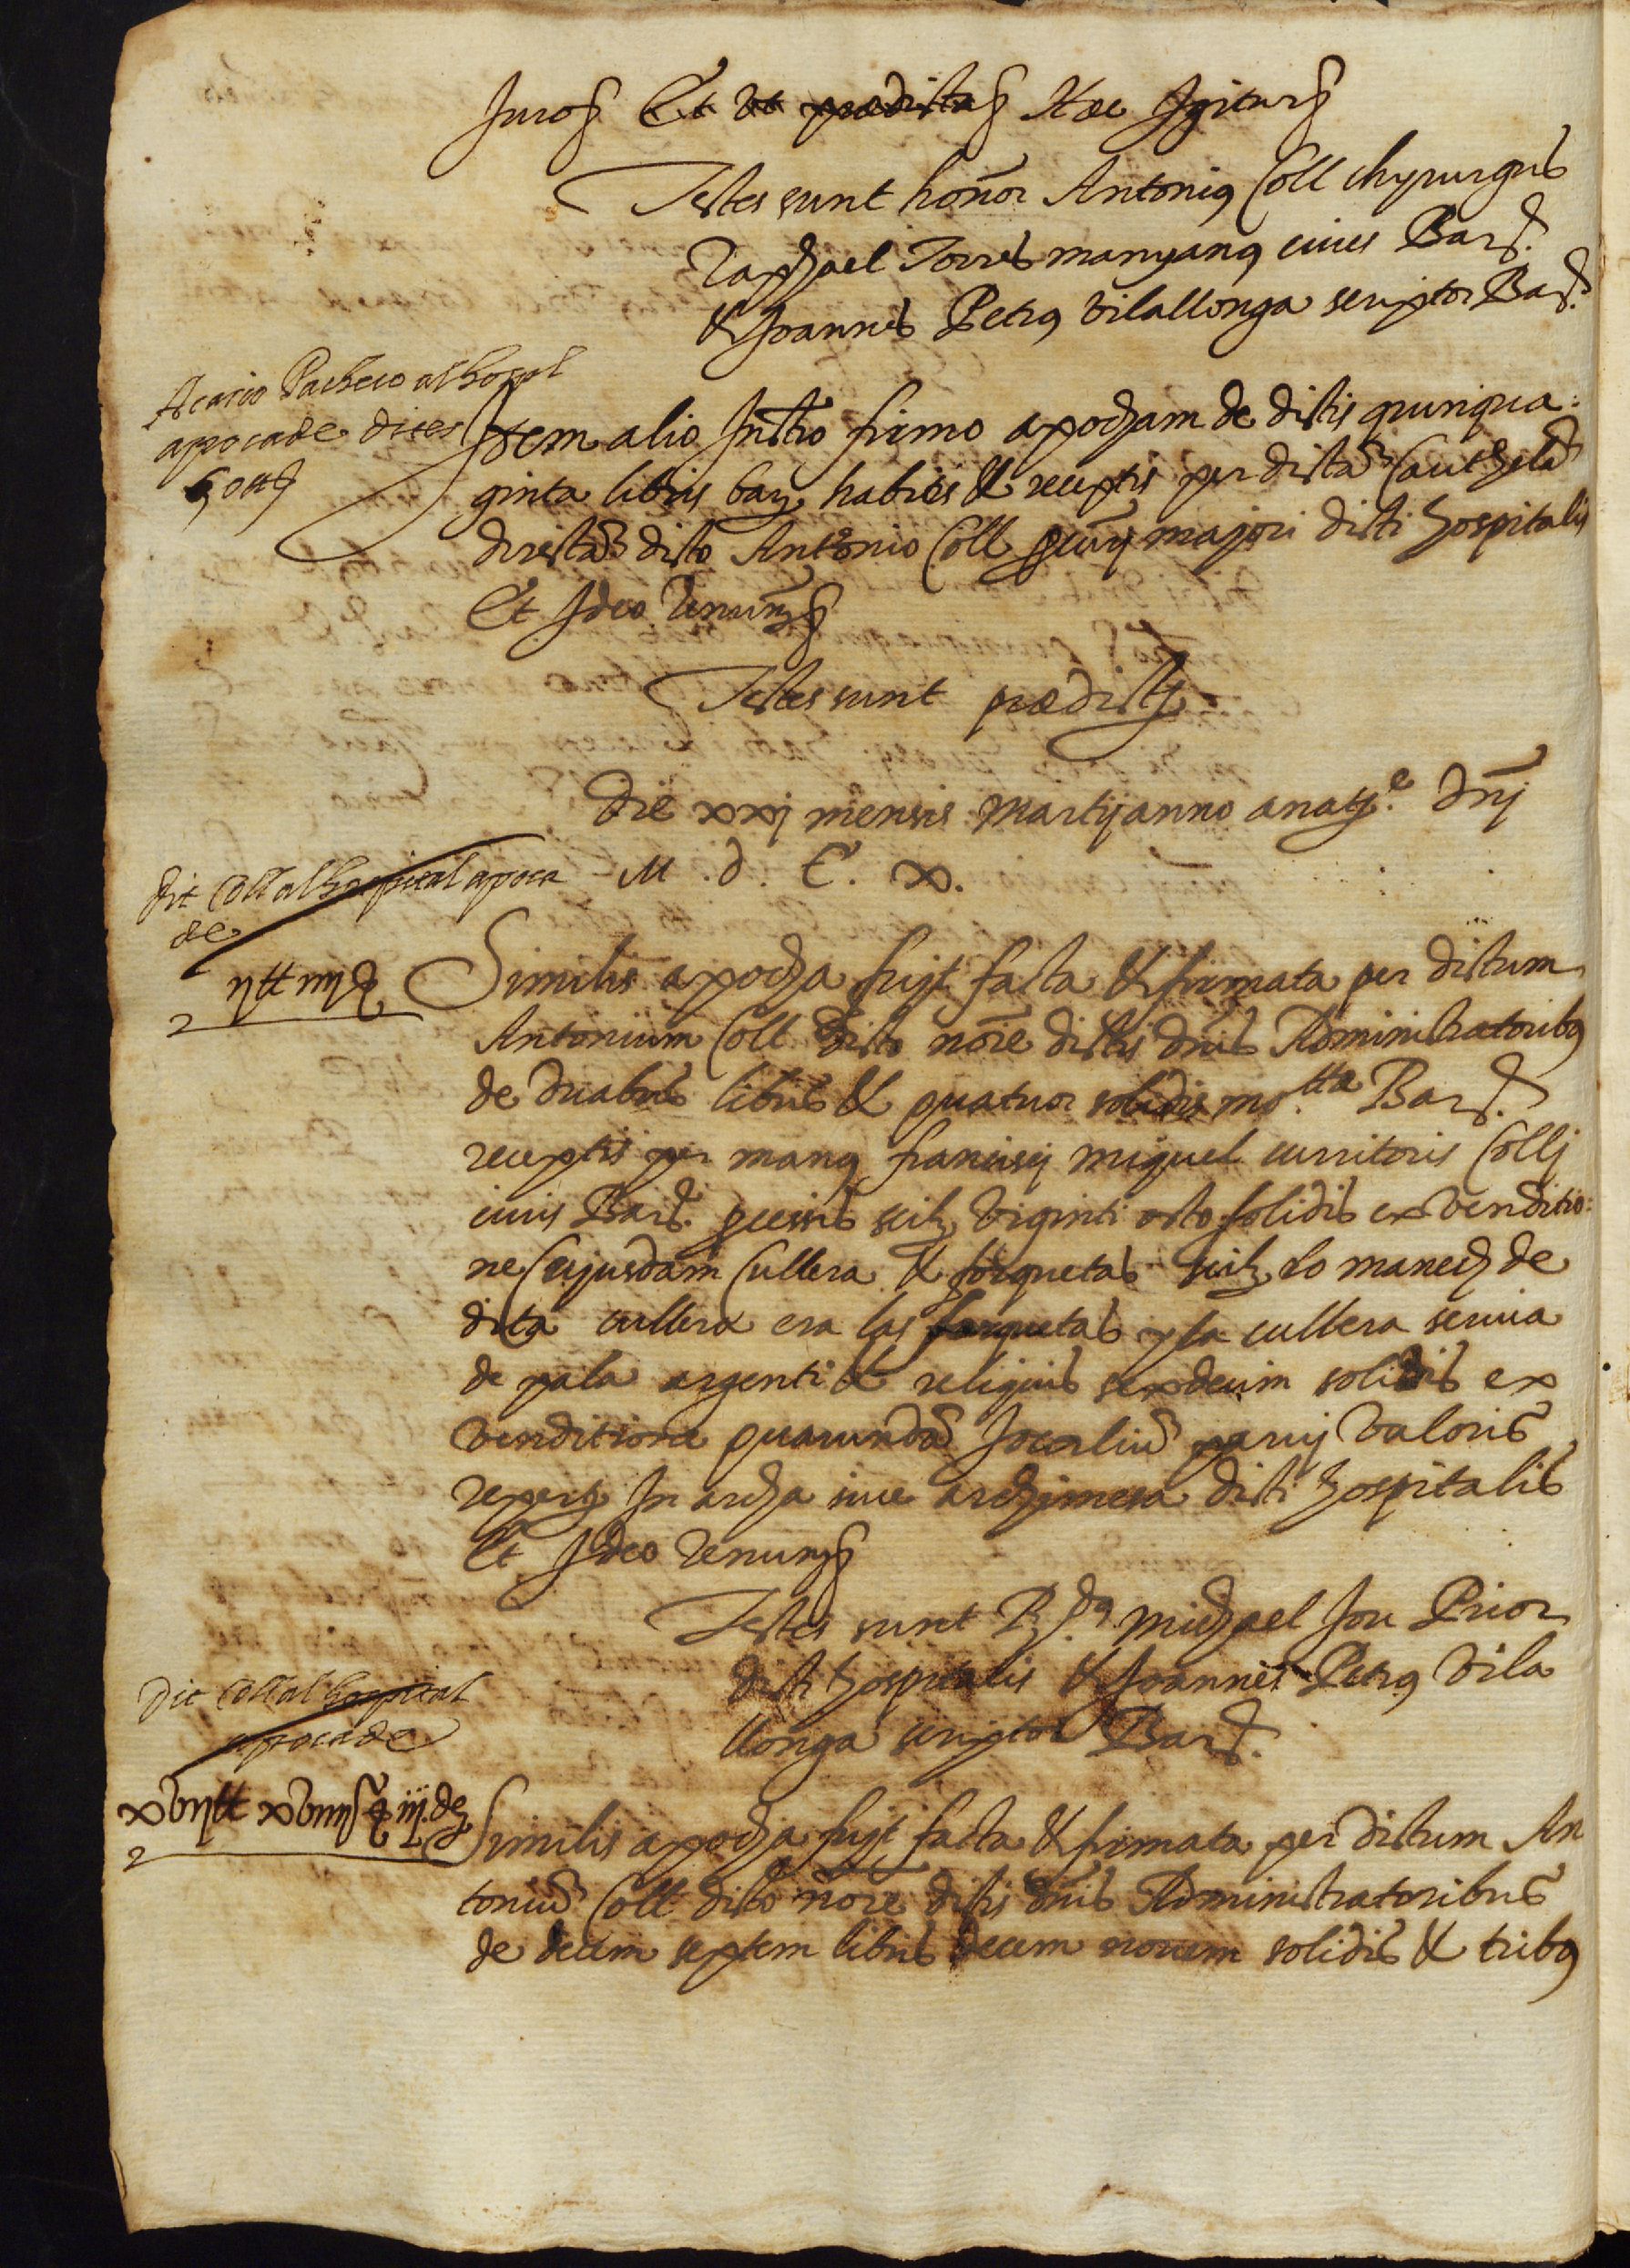 Juro Et ut prædicta Hæc Igitur
Testes sunt honor Antoniꝰ Coll chyrurgus
Raphael Torres manyanꝰ cives Barꝰ.
& Joannes Petrꝰ Vilallonga scriptor Barꝰ.
Acacio Pacheco al hospl
appoca de dites
50 ₶
Item alio Instro firmo apocham de dictis quinqua:
ginta libris bar habitis & receptis per dictã Cauthelã
directã dicto Antonio Coll majori dicti hospitalis
Et Ideo Renun
Testes sunt prædicti
Die xxj mensis Martij anno a natᵉ Dnj
M . D . C . X.
Dit Coll al hospital apoca
de
ij ₶ iiij s
Similis apocha fuit facta & firmata per dictum
Antonium Coll dicto nõie dictis dnis Administratoribꝰ
de duabus libris & quatuor solidis mo.ttæ Bar.
receptis per manꝰ francisci miquel curritoris Colli
civis Bar. scilz viginti octo solidis ex venditio:
ne Cujusdam Cullera & forquetas scilz lo manech de
dita cullera era las forquetas y la cullera servia
de pala argenti & reliquis sexdecim solidis ex
venditione quarundã Jocaliũ parvj valoris
repertꝫ In archa sive archimesa dicti hospitalis
Et Ideo Renun
Testes sunt R.dꝰ Michael Jou Prior
dicti hospitalis & Joannes Petrꝰ Vila
llonga scriptor Bar.
Dit Coll al hospital
apoca de
xvij ₶ xviiij s iij d
Similis apocha fuit facta & firmata per dictum An
toniũ Coll dicto nõie dictis dnis Administratoribus
de decem septem libris decem novem solidis & tribꝰ